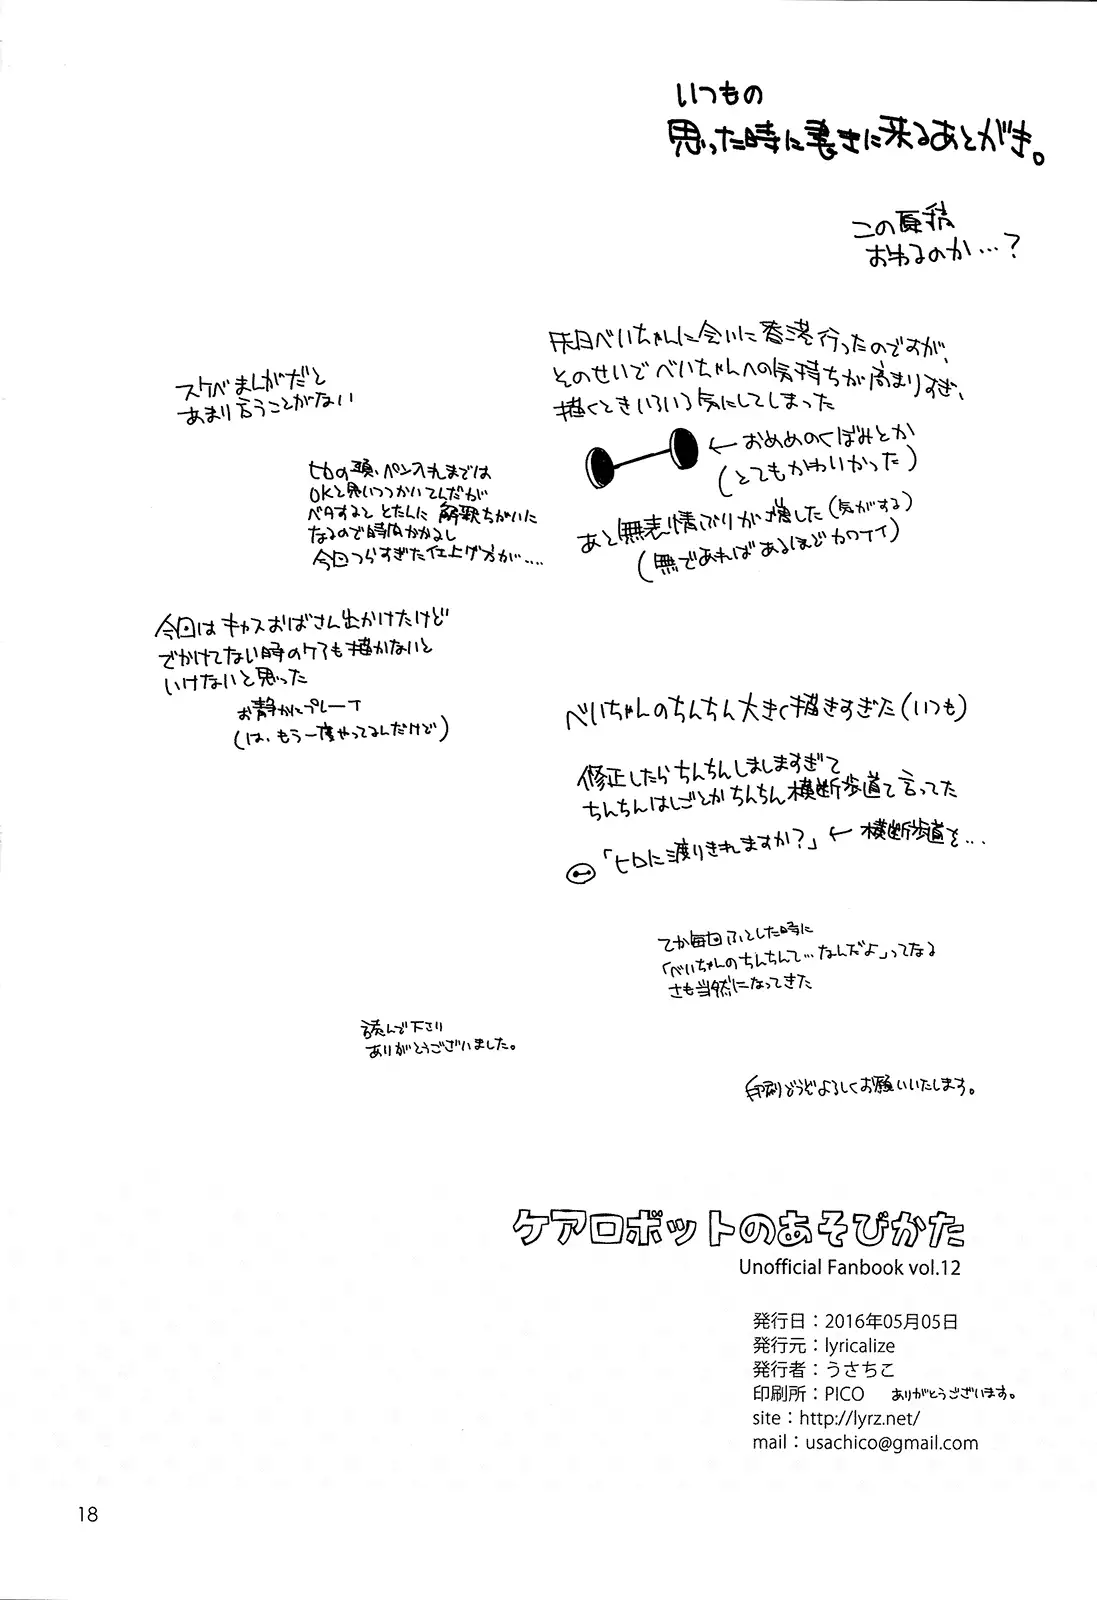 いつもの
思った時に書きに来るあとがき。
この原稿
おわるのか…?
先日べいちゃんに会いに香港行ったのですが、
そのせいでべいちゃんへの気持ちが高まりすぎ、
描くときいろいろ気にしてしまった
←おめめのくぼみとか
(とてもかわいかった)
あと無表情ぶりが増した(気がする)
(無であればあるほどカワイイ)
スケベまんがだと
あまり言うことがない
ヒロの頭、ペン入れまでは
OKと思いつつかいてんだが
ベタするととたんに解釈ちがいに
なるので時間かかるし
今回つらすぎた仕上げ方が....
今回はキャスおばさん出かけたけど
でかけてない時のケアも描かないと
いけないと思った
お静かにプレーイ
(は、もう一度やってるんだけど)
べいちゃんのちんちん大きく描きすぎた(いつも)
修正したらちんちんしましますぎて
ちんちんはしごとかちんちん横断歩道て言ってた
「ヒロに渡りきれますか?」←横断歩道を…
てか毎回ふとした時に
「べいちゃんのちんちんて…なんだよ」ってなる
さも当然になってきた
読んで下さり
ありがとうございました。
印刷どうぞよろしくお願いいたします。
ケアロボットのあそびかた
Unofficial Fanbook vol.12
発行日：2016年05月05日
発行元：lyricalize
発行者：うさちこ
印刷所：PICO ありがとうございます。
site：http://lyrz.net/
mail：usachico@gmail.com
18